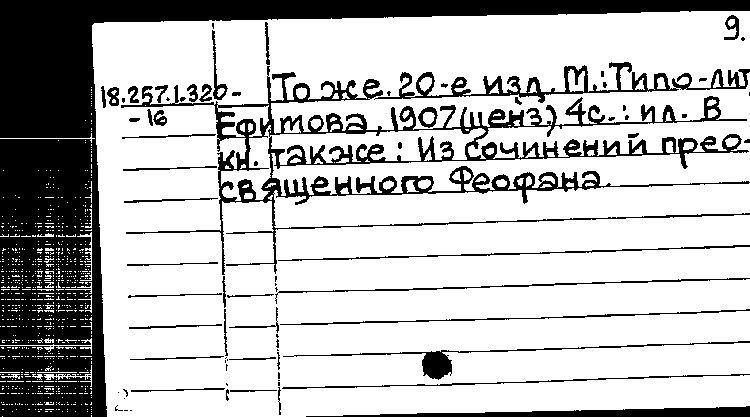 9.
18.257.1.320- То же. 20-е изд. М.: Типо-лит
-16 Ефимова, 1907(ценз). 4с.: ил. В
кн. также: Из сочинений прео-
священного Феофана.
2